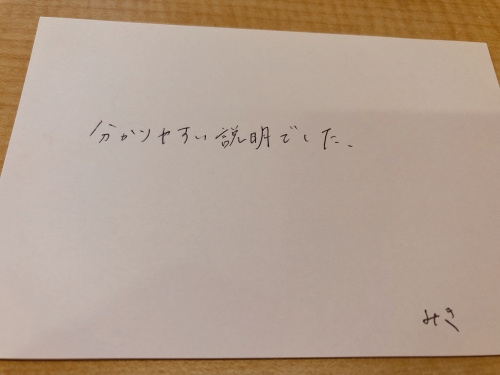 分かりやすい説明でした.
みき